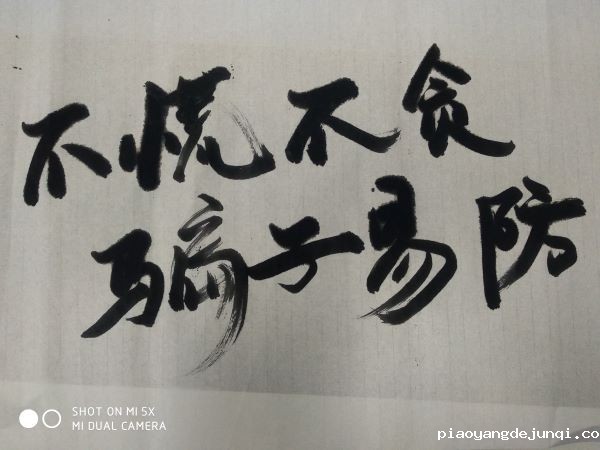 不慌不贪
骗子易防
SHOT ON MI 5X
MI DUAL CAMERA
piaoyangdejunqi.co